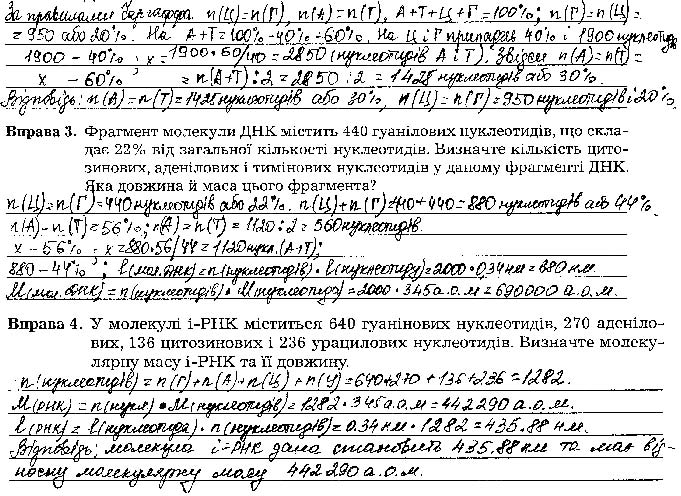 За правилами Чаргаффа n(Ц)=n(Г), n(A)=n(T), A+T+Ц+Г=100%; n(Г)=n(Ц)=
=950 або 20%. На A+T=100%-40%=60%. На Ц і Г припадає 40% і 1900 нуклеотидів
1900 – 40% ; x=1900·60/40=2850 (нуклеотидів А і Т). Звідси n(A)=n(T)=
x – 60% = n(A+T):2=2850:2=1425 нуклеотидів або 30%.
Відповідь: n(A)=n(T)=1425 нуклеотидів або 30%, n(Ц)=n(Г)=950 нуклеотидів і 20%.
Вправа 3. Фрагмент молекули ДНК містить 440 гуанілових нуклеотидів, що скла-
дає 22% від загальної кількості нуклеотидів. Визначте кількість цито-
зинових, аденілових і тимінових нуклеотидів у даному фрагменті ДНК.
Яка довжина й маса цього фрагмента?
n(Ц)=n(Г)=440 нуклеотидів або 22%. n(Ц)+n(Г)=440+440=880 нуклеотидів або 44%.
n(A)-n(T)=56%; n(A)=n(T)=1120:2=560 нуклеотидів.
x – 56% ; x=880·56/44=1120 нукл.(A+T);
880 – 44% ; l(мол.ДНК)=n(нуклеотидів)·l(нуклеотиду)=2000·0,34нм=680 нм.
M(мол. ДНК)=n(нуклеотидів)·M(нуклеотида)=2000·345а.о.м=690000 а.о.м.
Вправа 4. У молекулі і-РНК міститься 640 гуанінових нуклеотидів, 270 аденіло-
вих, 136 цитозинових і 236 урацилових нуклеотидів. Визначте молеку-
лярну масу і-РНК та її довжину.
n(нуклеотидів)=n(Г)+n(A)+n(Ц)+n(У)=640+270+136+236=1282.
M(РНК)=n(нукл)·M(нуклеотидів)=1282·345а.о.м=442290 а.о.м.
l(РНК)=l(нуклеотида)·n(нуклеотидів)=0.34нм·1282=435.88 нм.
Відповідь: молекула і-РНК дана становить 435.88 нм та має від-
носну молекулярну масу 442290 а.о.м.